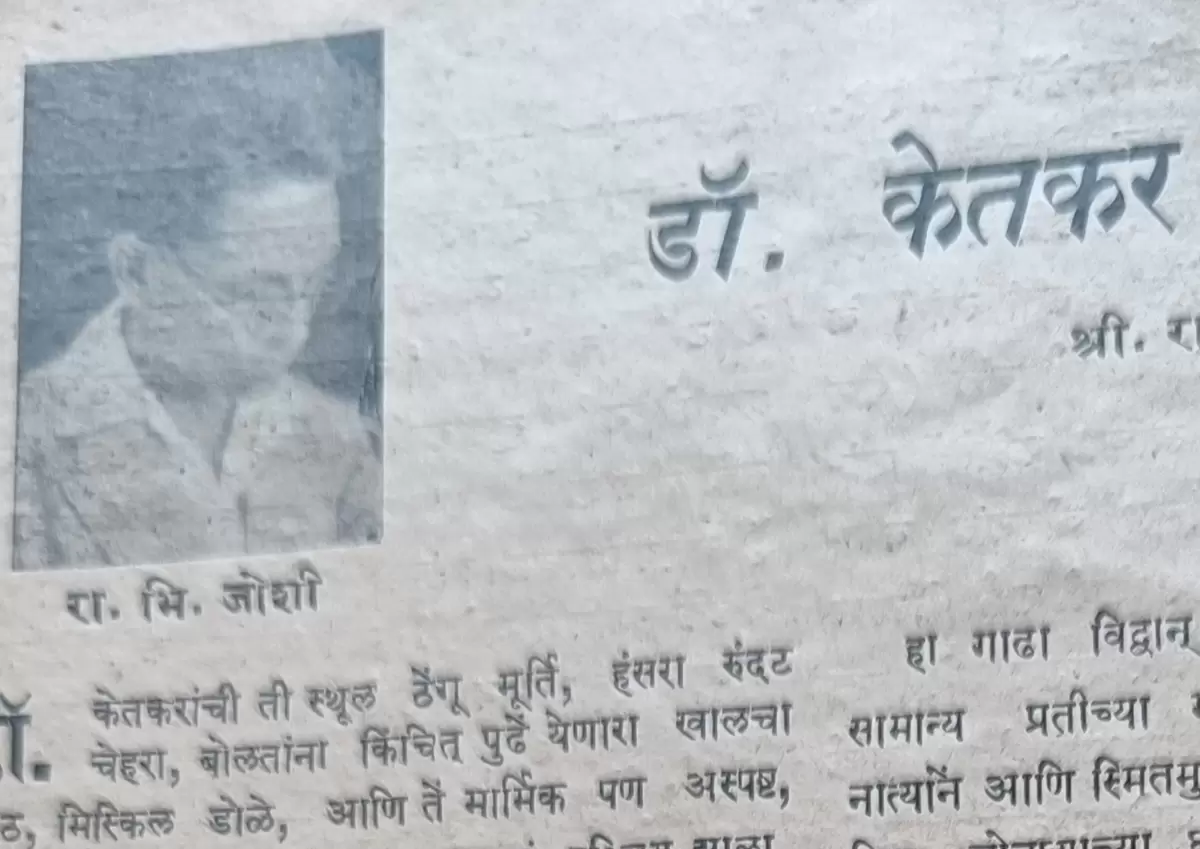 डॉ. केतकर
श्री.
रा. भि. जोशी
केतकरांची ती स्थूल ठेंगू मूर्ति, हंसरा रुंदट
चेहरा, बोलतांना किंचित् पुढें येणारा खालचा
मिस्किल डोळे, आणि तें मार्मिक पण अस्पष्ट,
झाला
हा गाढा विद्वान्
सामान्य प्रतीच्या
नात्यानें आणि